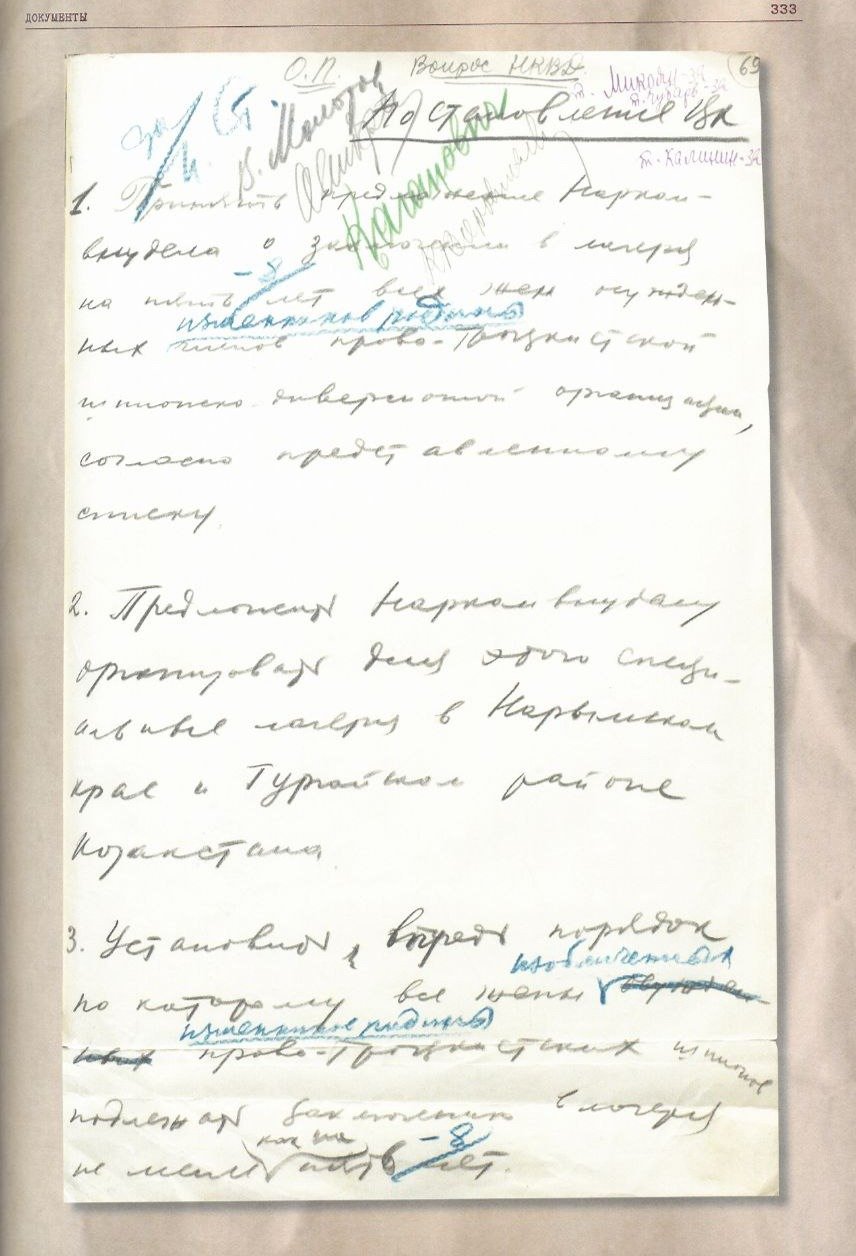 ДОКУМЕНТЫ
333
О.П. Вопрос НКВД
69
т. Микоян-за
т. Чубарь-за
Постановление ЦК
т. Калинин-за
за
И. Ст
В. Молотов
Каганович
1. Принять предложение Нарком-
внудела о заключении в лагеря
на пять -8 лет всех жен осужден-
изменников родины
ных членов право-троцкистской
шпионско-диверсионной организации,
согласно представленному
списку.
2. Предложить Наркомвнуделу
организовать для этого специ-
альные лагеря в Нарымском
крае и Тургайском районе
Казакстана
3. Установить впредь порядок
изобличенных
по которому все жены осужден-
изменников родины
ных право-троцкистских шпионов
подлежат заключению в лагеря
как на
не менее пять -8 лет.